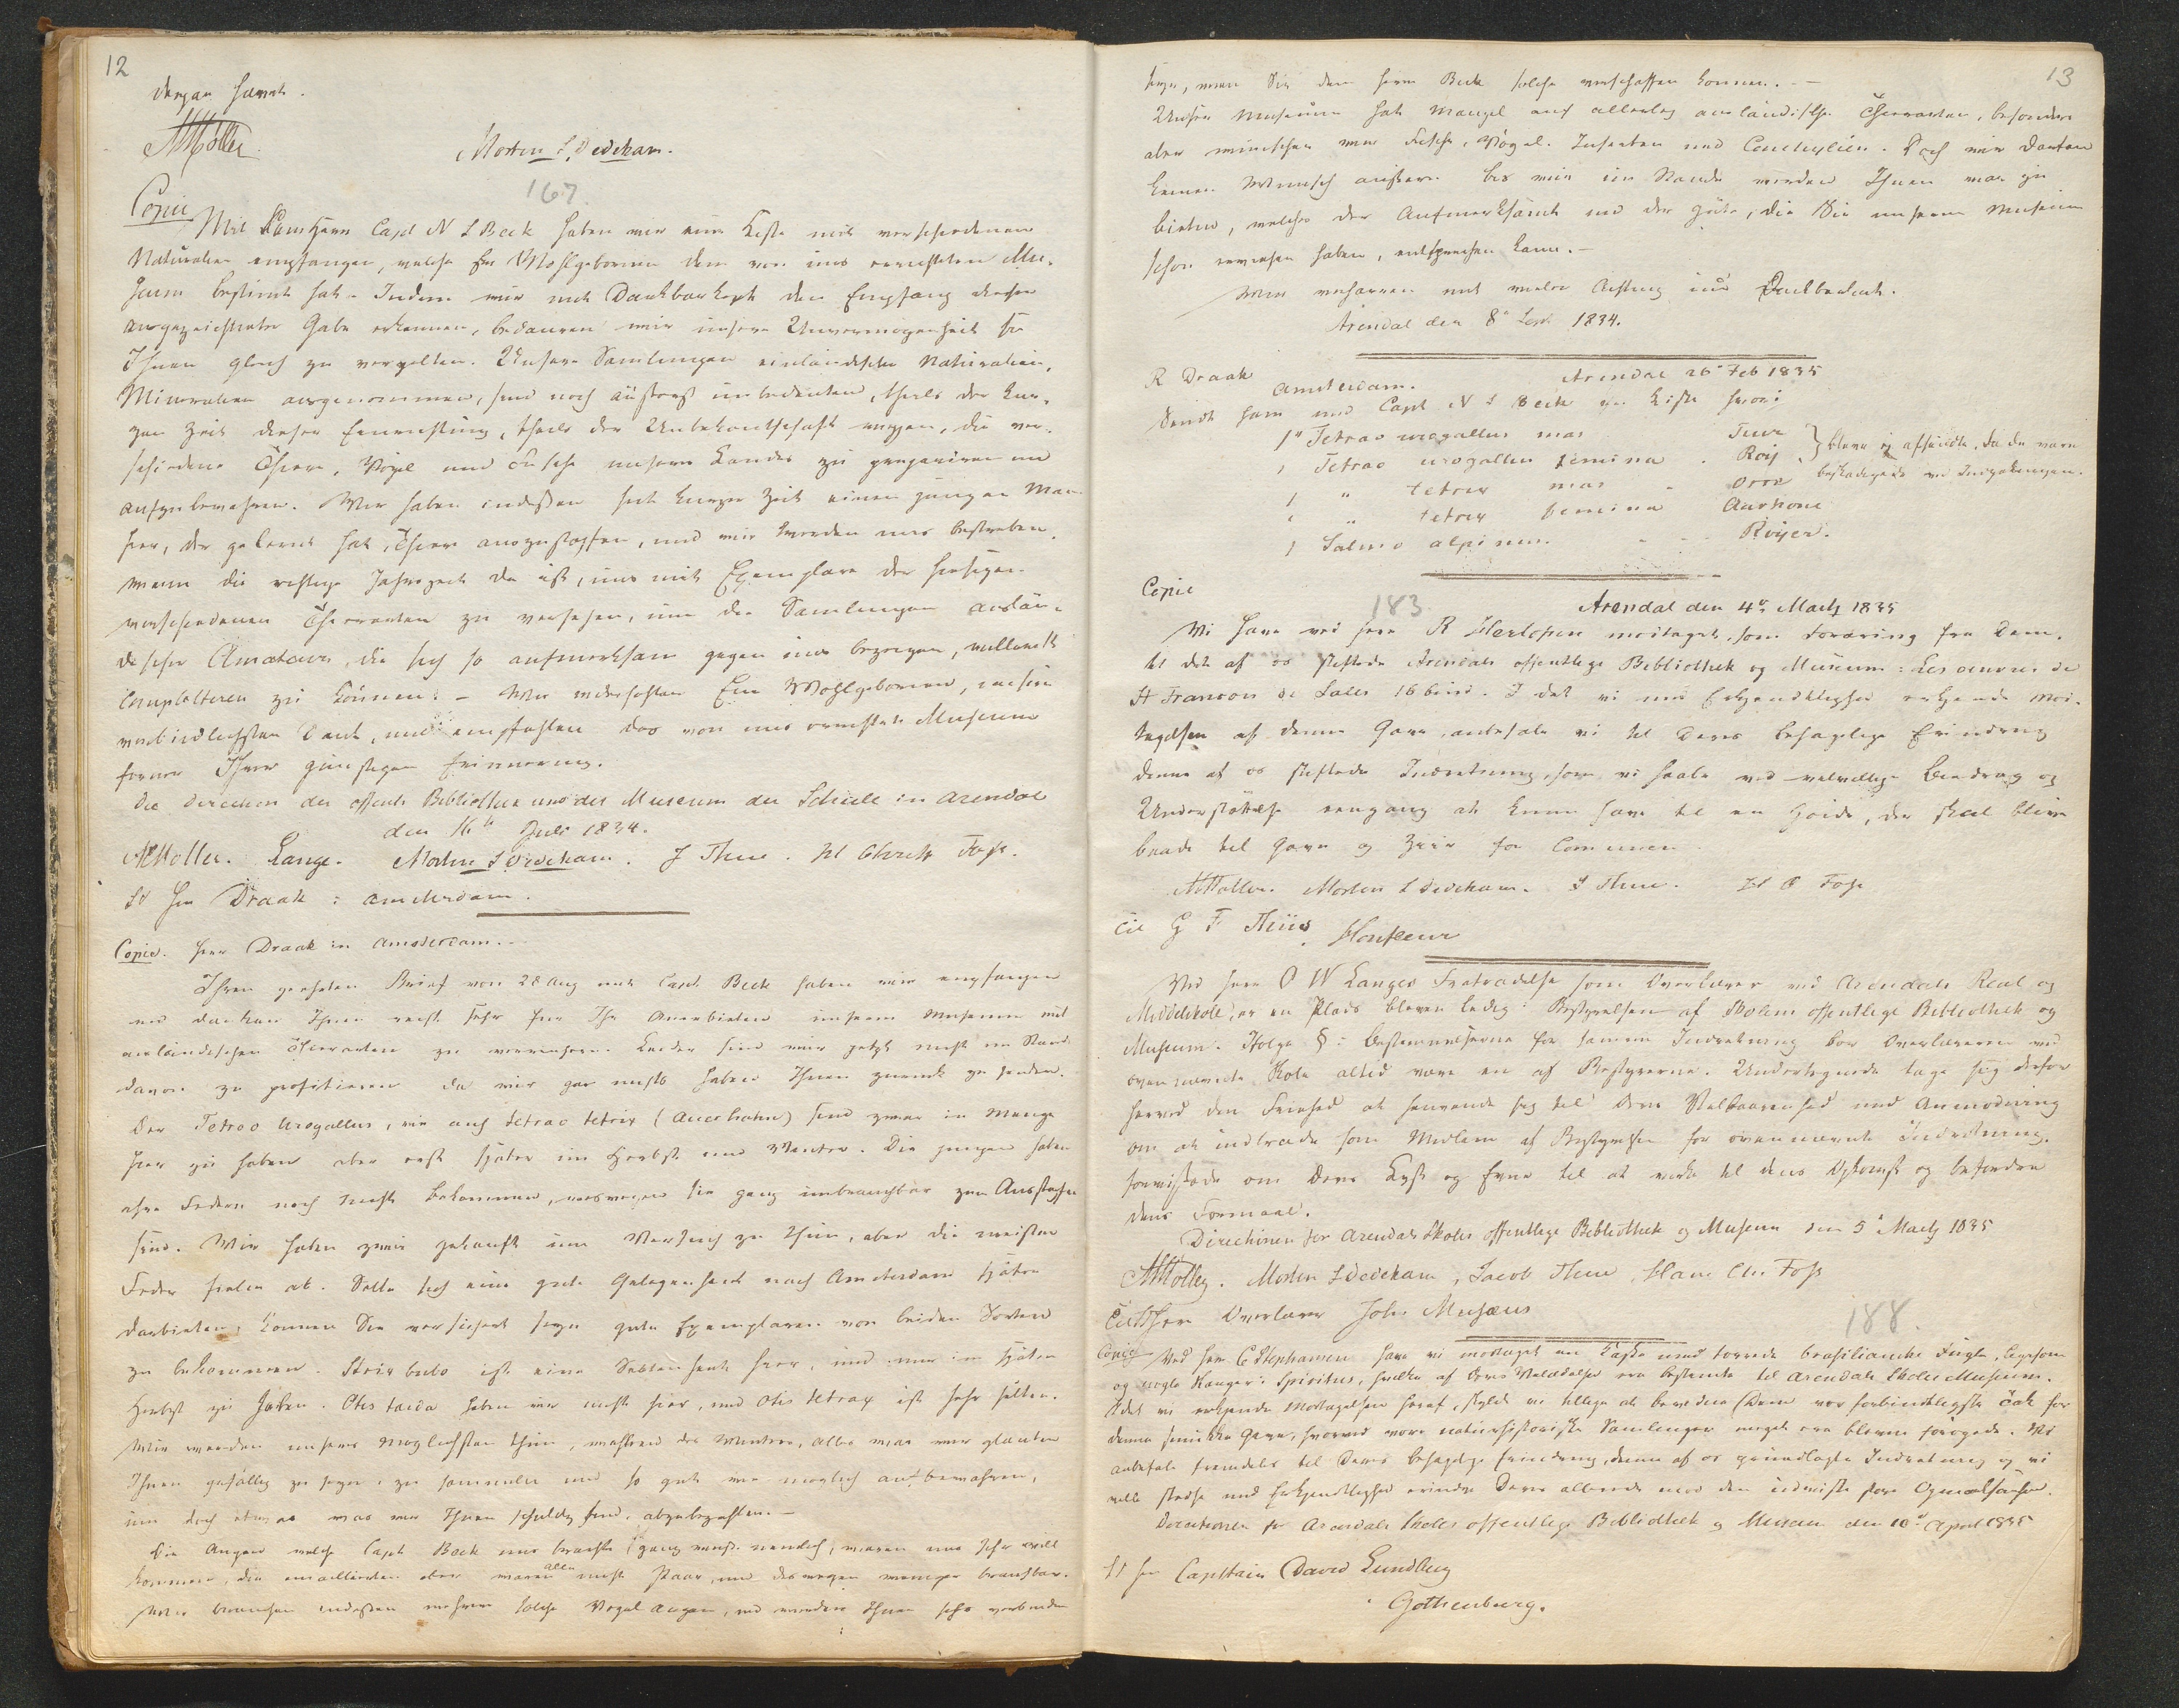 12
dergen hervet.
AMöller.
Morten S. Dedekam.
167
Copie
Mit dem Herrn Capt N S Beck haben wir eine Kiste mit verschiedenen
Naturalien empfangen, welche Ew Wohlgebornen dem von uns errichteten Mu-
seum bestimt hat. Indem wir mit Dankbarkeit den Empfang dieser
ausgezeichneter Gabe erkennen, bedauren wir unsere Unvermögenheit sie
Ihnen gleich zu vergelten. Unsere Samlungen einländischer Naturalien,
Mineralien ausgenommen, sind noch äusserst unbedeuten, theils der kur-
zen Zeit dieser Einrichtung, theils der Unbekantschaft wegen, die ver-
schiedene Thiere, Vögel und Fische unseres Landes zu prepariren und
aufzubewahren. Wir haben indessen seit kurzer Zeit einen jungen Man
hier, der gelernt hat, Thiere auszustopfen, und wir werden uns bestreben,
wenn die richtige Jahrszeit da ist, uns mit Exemplare der hiesigen
verschiedenen Thierarten zu versehen, um die Samlungen auslän-
discher Amateurs, die sich so aufmerksam gegen uns bezeigen, vielleicht
completteren zu können. – Wir widerhohlen Ew Wohlgebornen, unsern
verbindlichsten Dank, und empfehlen das von uns errichtete Museum
ferner Ihrer günstigen Erinnerung.
Die Direction der offentl Bibliothek und des Museum der Schule in Arendal
den 16 Juli 1834.
AMöller. Lange. Morten S Dedekam. J Thue. Hl Christ Foss.
St Hr Draak : Amsterdam.
Copie. Herr Draak in Amsterdam. –
Ihren geehrten Brief von 28 Aug mit Capt. Beck haben wir empfangen
und danken Ihnen recht sehr für Ihr Anerbieten unserm Museum mit
ausländischen Thierarten zu vermehren. Leider sind wir jetzt nicht im Stande
davon zu profitieren da wir gar nichts haben Ihnen zurück zu senden.
Der Tetrao Urogallus, wie auch tetrao tetrix (Auerhahn) sind zwar in Menge
hier zu haben aber erst später im Herbst und Winter. Die jungen haben
ihre Federn noch nicht bekommen, weswegen sie ganz unbrauchbar zum Ausstopfen
sind. Wir haben zwei gekauft um Versuch zu thun, aber die meisten
Feder fielen ab. Sollte sich eine gute Gelegenheit nach Amsterdam später
darbieten, können Sie versichert seyn gute Exemplaren von beiden Sorten
zu bekommen. Strix bubo ist eine Seltenheit hier, und nur im später
Herbst zu haben. Otis tarda haben wir nicht hier, und otis tetrax ist sehr selten.
Wir werden unsers möglichsten thun, während des Winters, alles was wir glauben
Ihnen gefällig zu seyn, zu sammeln und so gut wie möglich aufbewahren,
um doch etwas was wir Ihnen schuldig sind, abzubezahlen. –
Die Augen welche Capt Beck uns brachte (ganz recht nemlich, waren uns sehr will
kommen, die emaillierten aber waren alle nicht Paar, und deswegen weniger brauchbar.
Wir brauchen indessen mehrere solche Vogel augen, und werden Ihnen sehr verbunden
13
seyn, wenn Sie dem Herrn Beck solche verschaffen konnen. –
Unser Museum hat Mangel auf allerley ausländische Thierarten, besonders
aber wünschen wir Fische, Vögel. Insecten und Conchylien. Doch wir dorfen
keinen Wunsch äussern bis wir im Stande werden Ihnen was zu
bieten, welches der Aufmerksamk und der Güte, die Sie unserem Museum
schon erwiesen haben, entsprechen kann. –
Wir verharren mit vieler Achtung und Dankbarkeit.
Arendal den 8 Sept 1834.
R Draak
Amsterdam. Arendal 26 Feb 1835
Sendt ham med Capt N S Beck en Kiste hvori
1 Tetrao urogallus mas Tiur
1 Tetrao urogallus femina . Röy } bleve ej afsendte, da de vare
beskadigede ved Indpakningen.
1 " tetrix mas - Orre
1 " tetrix femina Aurhöne
1 Salmo alpinus - - Röyer.
Copie
183
Arendal den 4 Marts 1835
Vi have ved Herr R Herlofsen modtaget, som Foræring fra Dem,
til det af os stiftede Arendals offentlige Bibliothek og Museum: Les oeuvres de
St Francois de Sales 16 bind. I det vi med Erkjendtlighed erkjende Mod-
tagelsen af denne Gave, anbefale vi til Deres behagelige Erindring
denne af os stiftede Indretning, som vi haabe ved velvillige Bidrag og
Understöttelse eengang at kunne have til en Höide, der skal blive
baade til Gavn og Ziir for Communen
AMöller. Morten S Dedekam. J Thue. Hl C Foss
Til G F Thiis, Honfleur
Ved Herr O W Langes Fratrædelse som Overlærer ved Arendals Real og
Middelskole, er en Plads bleven ledig i Bestyrelsen af Skolens offentlige Bibliothek og
Museum. Ifølge § i Bestemmelserne for samme Indretning bør Overlæreren ved
ovennævnte Skole altid være en af Bestyrerne. Undertegnede tage sig derfor
herved den Frihed at henvende sig til Deres Velbaarenhed med Anmodning
om at indtræde som Medlem af Bestyrelsen for ovennævnte Indretning,
forvissede om Deres Lyst og Evne til at virke til dens Opkomst og befordre
dens Formaal.
Directionen for Arendals Skoles offentlige Bibliothek og Museum den 5 Marts 1835
AMöller. Morten S Dedekam, Jacob Thue, Hans Chr. Foss
Til Herr Overlærer John Musæus
188.
Copie Ved Herr C Stephansen have vi modtaget en Kasse med torrede brasilianske Fugle, ligesom
og nogle Slanger i Spiritus, hvilke af Deres Velædelhed ere bestemte til Arendals Skoles Museum.
Idet vi erkjende Modtagelsen heraf, skylde vi tillige at bevidne Dem vor forbindtligste Tak for
denne smukke Gave, hvorved vore naturhistoriske Samlinger meget ere blevne forögede. Vi
anbefale fremdeles til Deres behagelige Erindring, denne af os grundlagte Indretning og vi
ville stedse med Erkjendtlighed erindre Deres allerede mod den udviiste store Opmærksomhed.
Directionen for Arendals Skoles offentlige Bibliothek og Museum den 10 April 1835
St Hr Capitain David Lundberg
Gothenburg.